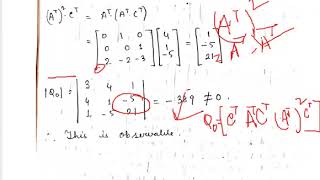 (Aᵀ)²·Cᵀ = Aᵀ(Aᵀ Cᵀ)
= [0 1 0; 0 0 1; 2 -2 -3] [4; 1; -5] = [1; -5; 21]
(Aᵀ)²
Aᵀ·Aᵀ
|Q₀| = |3 4 1; 4 1 -5; 1 -5 21| = -389 ≠ 0.
Q₀ = [Cᵀ AᵀCᵀ (Aᵀ)²Cᵀ
∴ This is observable.